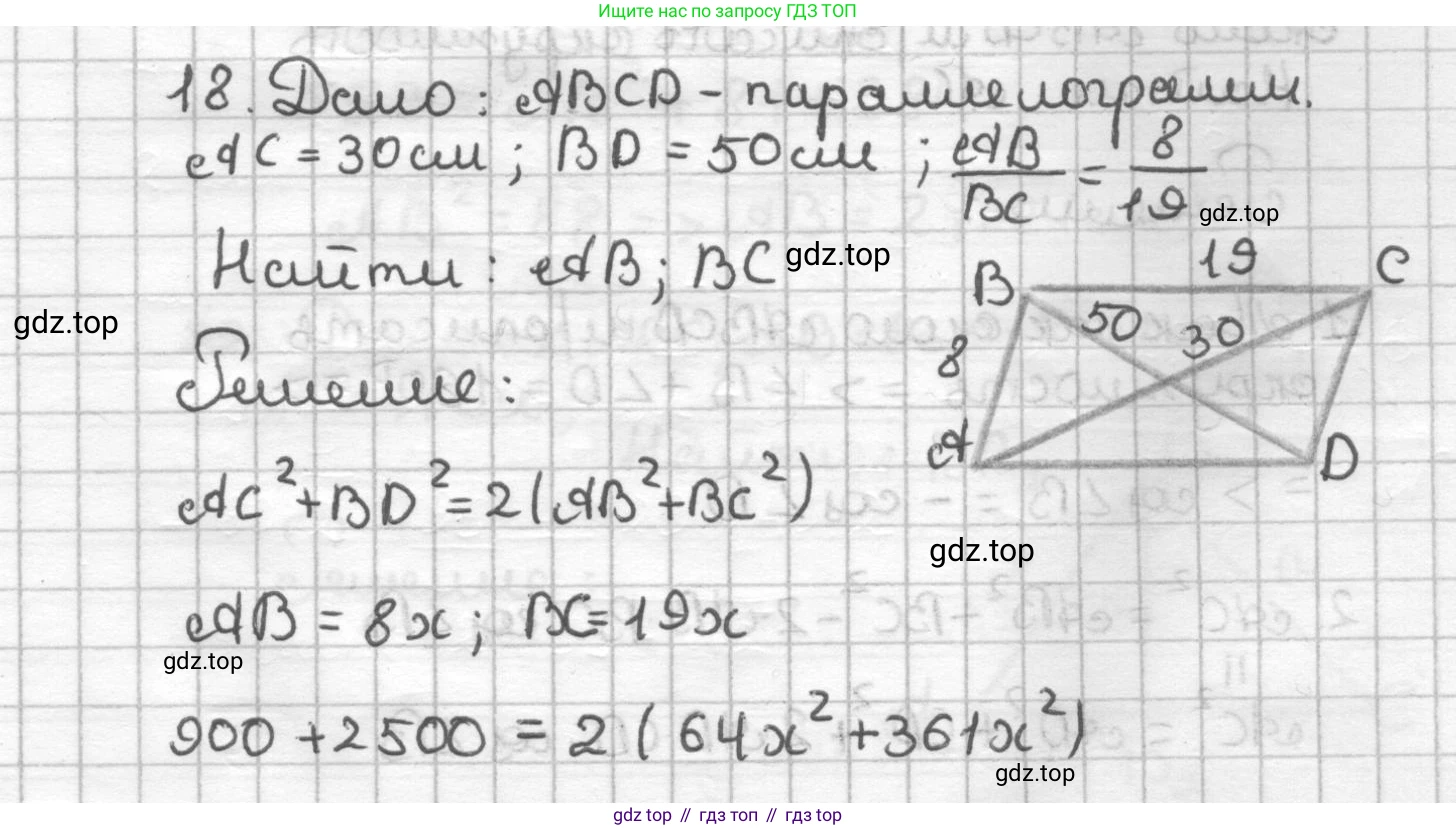 Ищите нас по запросу ГДЗ ТОП
18. Дано: ABCD - параллелограмм.
AC = 30 см; BD = 50 см; AB/BC = 8/19
gdz.top
Найти: AB; BC
gdz.top
gdz.top
B 19 C
50 30
8
A D
Решение:
AC²+BD²=2(AB²+BC²)
gdz.top
AB = 8x; BC=19x
gdz.top
900+2500 = 2(64x²+361x²)
gdz.top
gdz.top // гдз топ // gdz.top